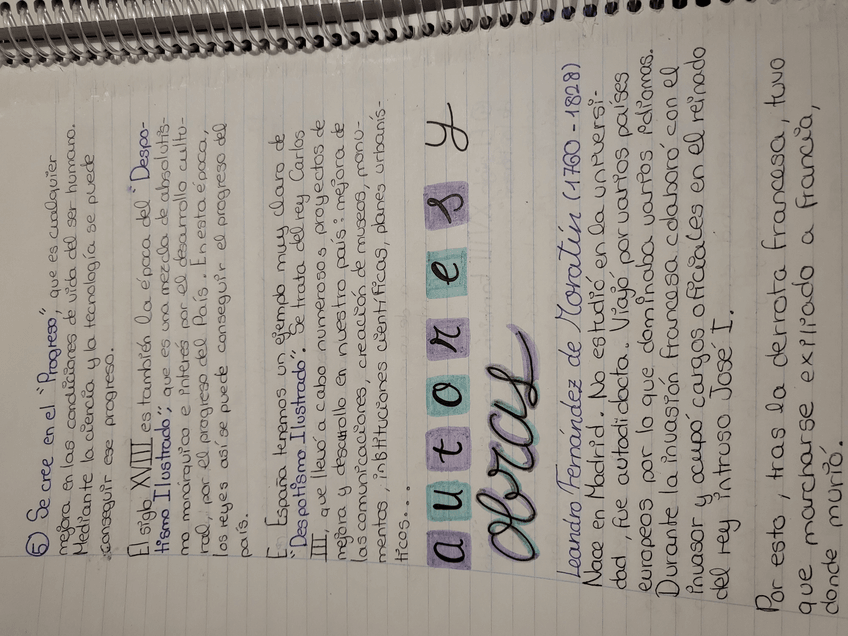 5) Se cree en el "Progreso", que es cualquier
mejora en las condiciones de vida del ser humano.
Mediante la ciencia y la tecnología se puede
conseguir ese progreso.
El siglo XVIII es también la época del "Despo-
tismo Ilustrado", que es una mezcla de absolutis-
mo monárquico e interés por el desarrollo cultu-
ral, por el progreso del País. En esta época,
los reyes así se puede conseguir el progreso del
país.
En España tenemos un ejemplo muy claro de
"Despotismo Ilustrado". Se trata del rey Carlos
III, que llevó a cabo numerosos proyectos de
mejora y desarrollo en nuestro país: mejora de
las comunicaciones, creación de museos, monu-
mentos, instituciones científicas, planes urbanís-
ticos...
autores y
obras
Leandro Fernández de Moratín (1760-1828)
Nace en Madrid. No estudió en la universi-
dad, fue autodidacta. Viajó por varios países
europeos por lo que dominaba varios idiomas.
Durante la invasión francesa colaboró con el
invasor y ocupó cargos oficiales en el reinado
del rey intruso José I.
Por esto, tras la derrota francesa, tuvo
que marcharse exiliado a Francia,
donde murió.